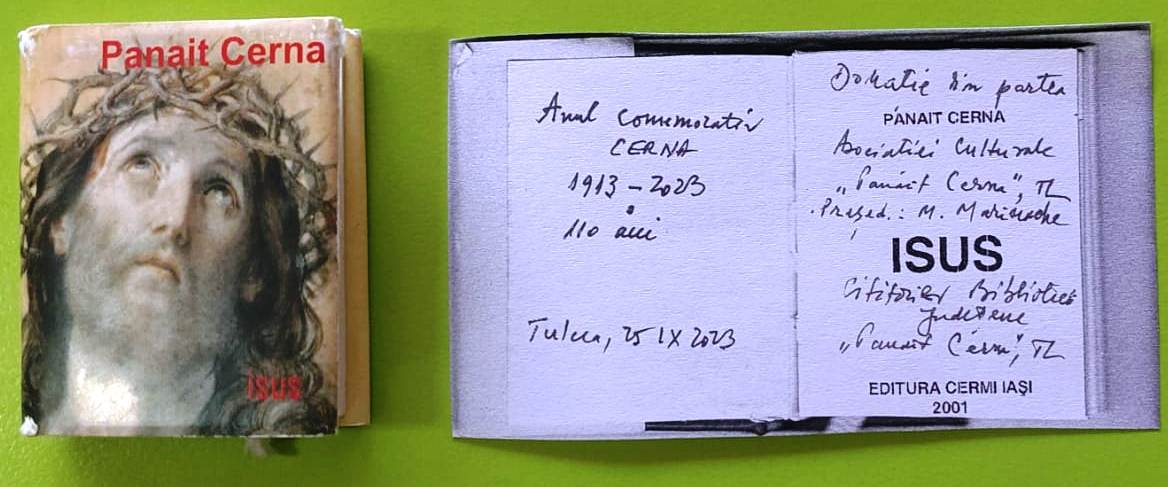 Panait Cerna
ISUS
Anul comemorativ
CERNA
1913 – 2023
110 ani
Tulcea, 25 IX 2023
Donație din partea
PANAIT CERNA
Asociației Culturale
„Panait Cerna”, TL
Președ.: M. Marinache
ISUS
Cititorilor Bibliotecii
Județene
„Panait Cerna”, TL
EDITURA CERMI IAȘI
2001